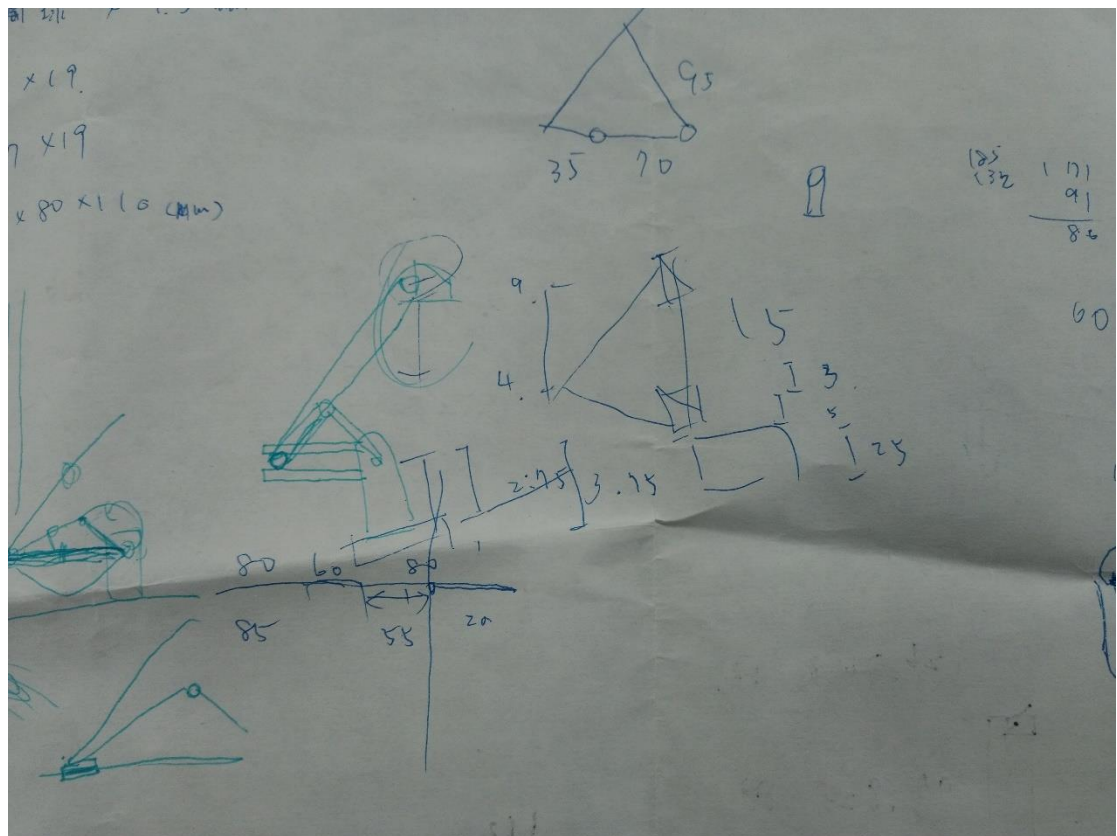 ×19.
×19
×80×110 (mm)
95
35 70
185
132
171
91
80
60
9.
4.
15
3.
5
25
2.75
3.75
1
80 60 80
85 55 20